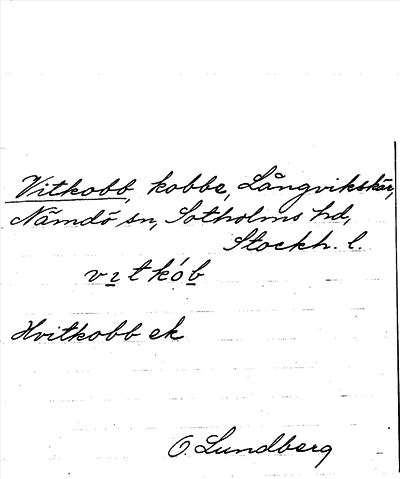 Vitkobb, kobbe, Långvikskär,
Nämdö sn, Sotholms hd,
Stockh. l.
vıtkób
Hvitkobb ek
O. Lundberg